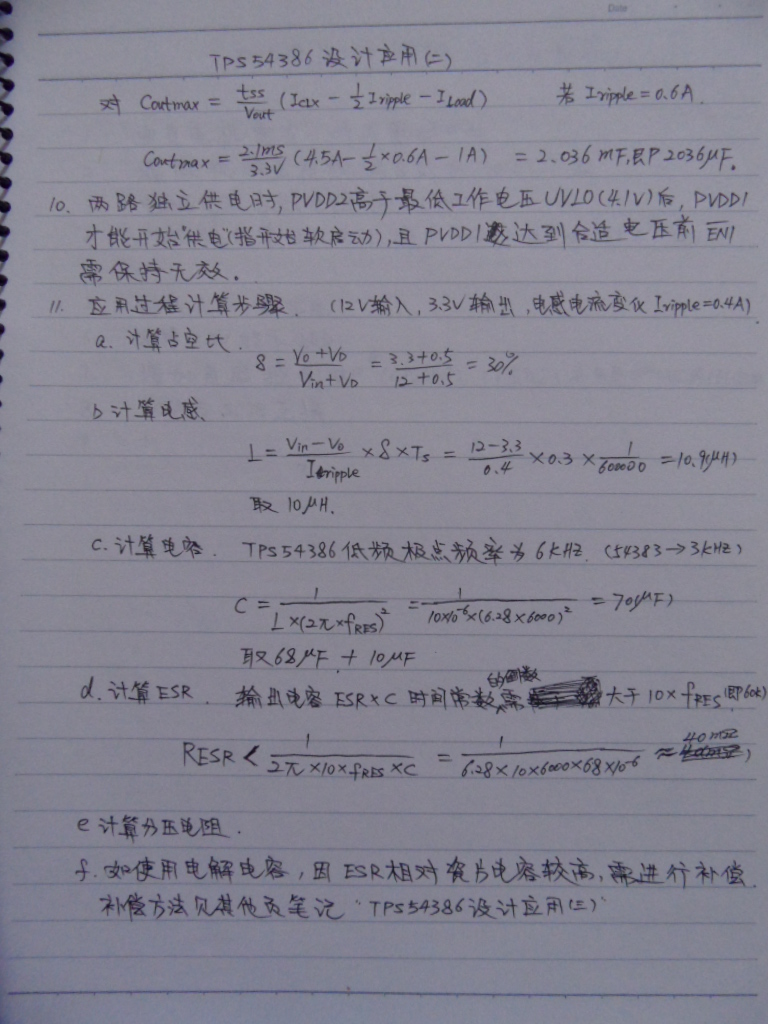 Date
TPS54386设计应用(二)
对 Coutmax = tss/Vout (ICLx − 1/2 Iripple − ILoad) 若 Iripple = 0.6A.
Coutmax = 2.1ms/3.3V (4.5A − 1/2 × 0.6A − 1A) = 2.036 mF,即 2036μF.
10. 两路独立供电时, PVDD2高于最低工作电压UVLO(4.1V)后, PVDD1
才能开始"供电"(指开始软启动), 且 PVDD1 达到合适电压前 EN1
需保持无效.
11. 应用过程计算步骤. (12V输入, 3.3V输出, 电感电流变化 Iripple=0.4A)
a. 计算占空比.
δ = Vo+VD/Vin+VD = 3.3+0.5/12+0.5 = 30%
b 计算电感
L = Vin−Vo/Iripple × δ × Ts = 12−3.3/0.4 × 0.3 × 1/600000 = 10.9(μH)
取 10μH.
c. 计算电容. TPS54386低频极点频率为6kHZ. (54383→3kHZ)
C = 1/L×(2π×fRES)² = 1/10×10⁻⁶×(6.28×6000)² = 70(μF)
取68μF + 10μF
d. 计算ESR. 输出电容 ESR×C 时间常数的倒数需大于 10×fRES(即60k)
RESR < 1/2π×10×fRES×C = 1/6.28×10×6000×68×10⁻⁶ ≈ 40mΩ
e 计算分压电阻.
f. 如使用电解电容, 因 ESR相对瓷片电容较高, 需进行补偿.
补偿方法见其他页笔记 "TPS54386设计应用(三)"